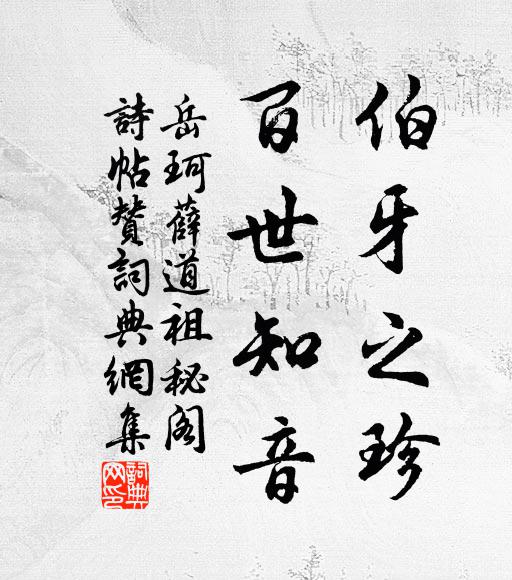 伯牙之珍
百世知音
岳珂薛道祖秘阁
詩帖赞詞典網集
詞典网印